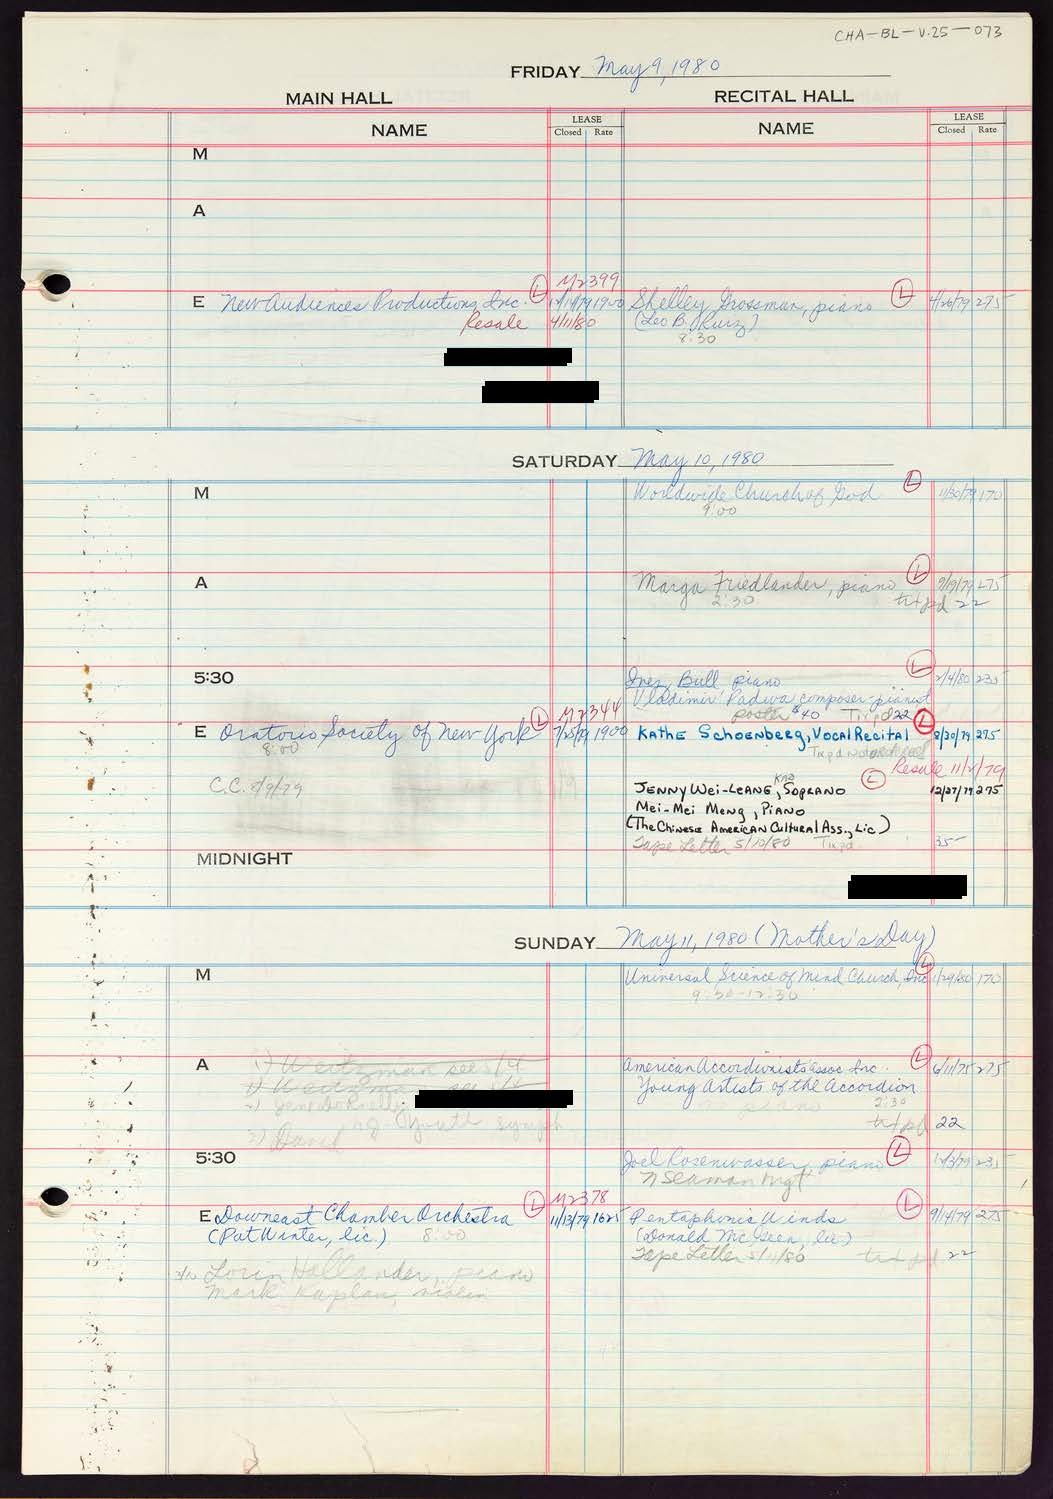 CHA-BL-V.25-073
FRIDAY May 9, 1980
MAIN HALL
RECITAL HALL
NAME
LEASE
Closed Rate
NAME
LEASE
Closed Rate
M
A
M2399
E New Audiences Productions, Inc. L 1900
Resale 4/11/80
Shelley Grossman, piano L 4/26/79 275
(Leo B. Ruiz)
8:30
SATURDAY May 10, 1980
M
Worldwide Church of God L 11/30/79 170
9:00
A
Marga Friedlander, piano L 9/19/79 275
2:30 txt pd 22
5:30
Inez Bull piano L 2/4/80 235
Vladimir Padwa composer-pianist
poster $40 Tix pd 22
M2344
E Oratorio Society of New York L 7/25/79 1900
8:00
C.C. 8/9/79
Kathe Schoenberg, Vocal Recital L 8/30/79 275
Tix pd
Resale 11/8/79
Jenny Wei-Leang, Soprano L 12/27/79 275
Mei-Mei Meng, Piano
(The Chinese American Cultural Ass., Lic)
Tape Letter 5/10/80 Tix pd 35
MIDNIGHT
SUNDAY May 11, 1980 (Mother's Day)
M
Universal Science of Mind Church, Inc L 1/29/80 170
9:30-12:30
A
1) Weitzman see 5/4
1) Weitzman see
2)
Youth Symph
3) David
American Accordionists' Assoc Inc. L 6/11/75 275
Young Artists of the Accordion
2:30
txt pd 22
5:30
Joel Rosenwasser, piano L 12/3/79 235
N Seaman Mgt
M2378
E Downeast Chamber Orchestra L 11/13/79 1625
(Pat Winter, lic.) 8:00
Lorin Hollander, piano
Mark Kaplan, violin
Pentaphonic Winds L 9/14/79 275
(Donald McGeen, lic)
Tape Letter 5/11/80 txt pd 22